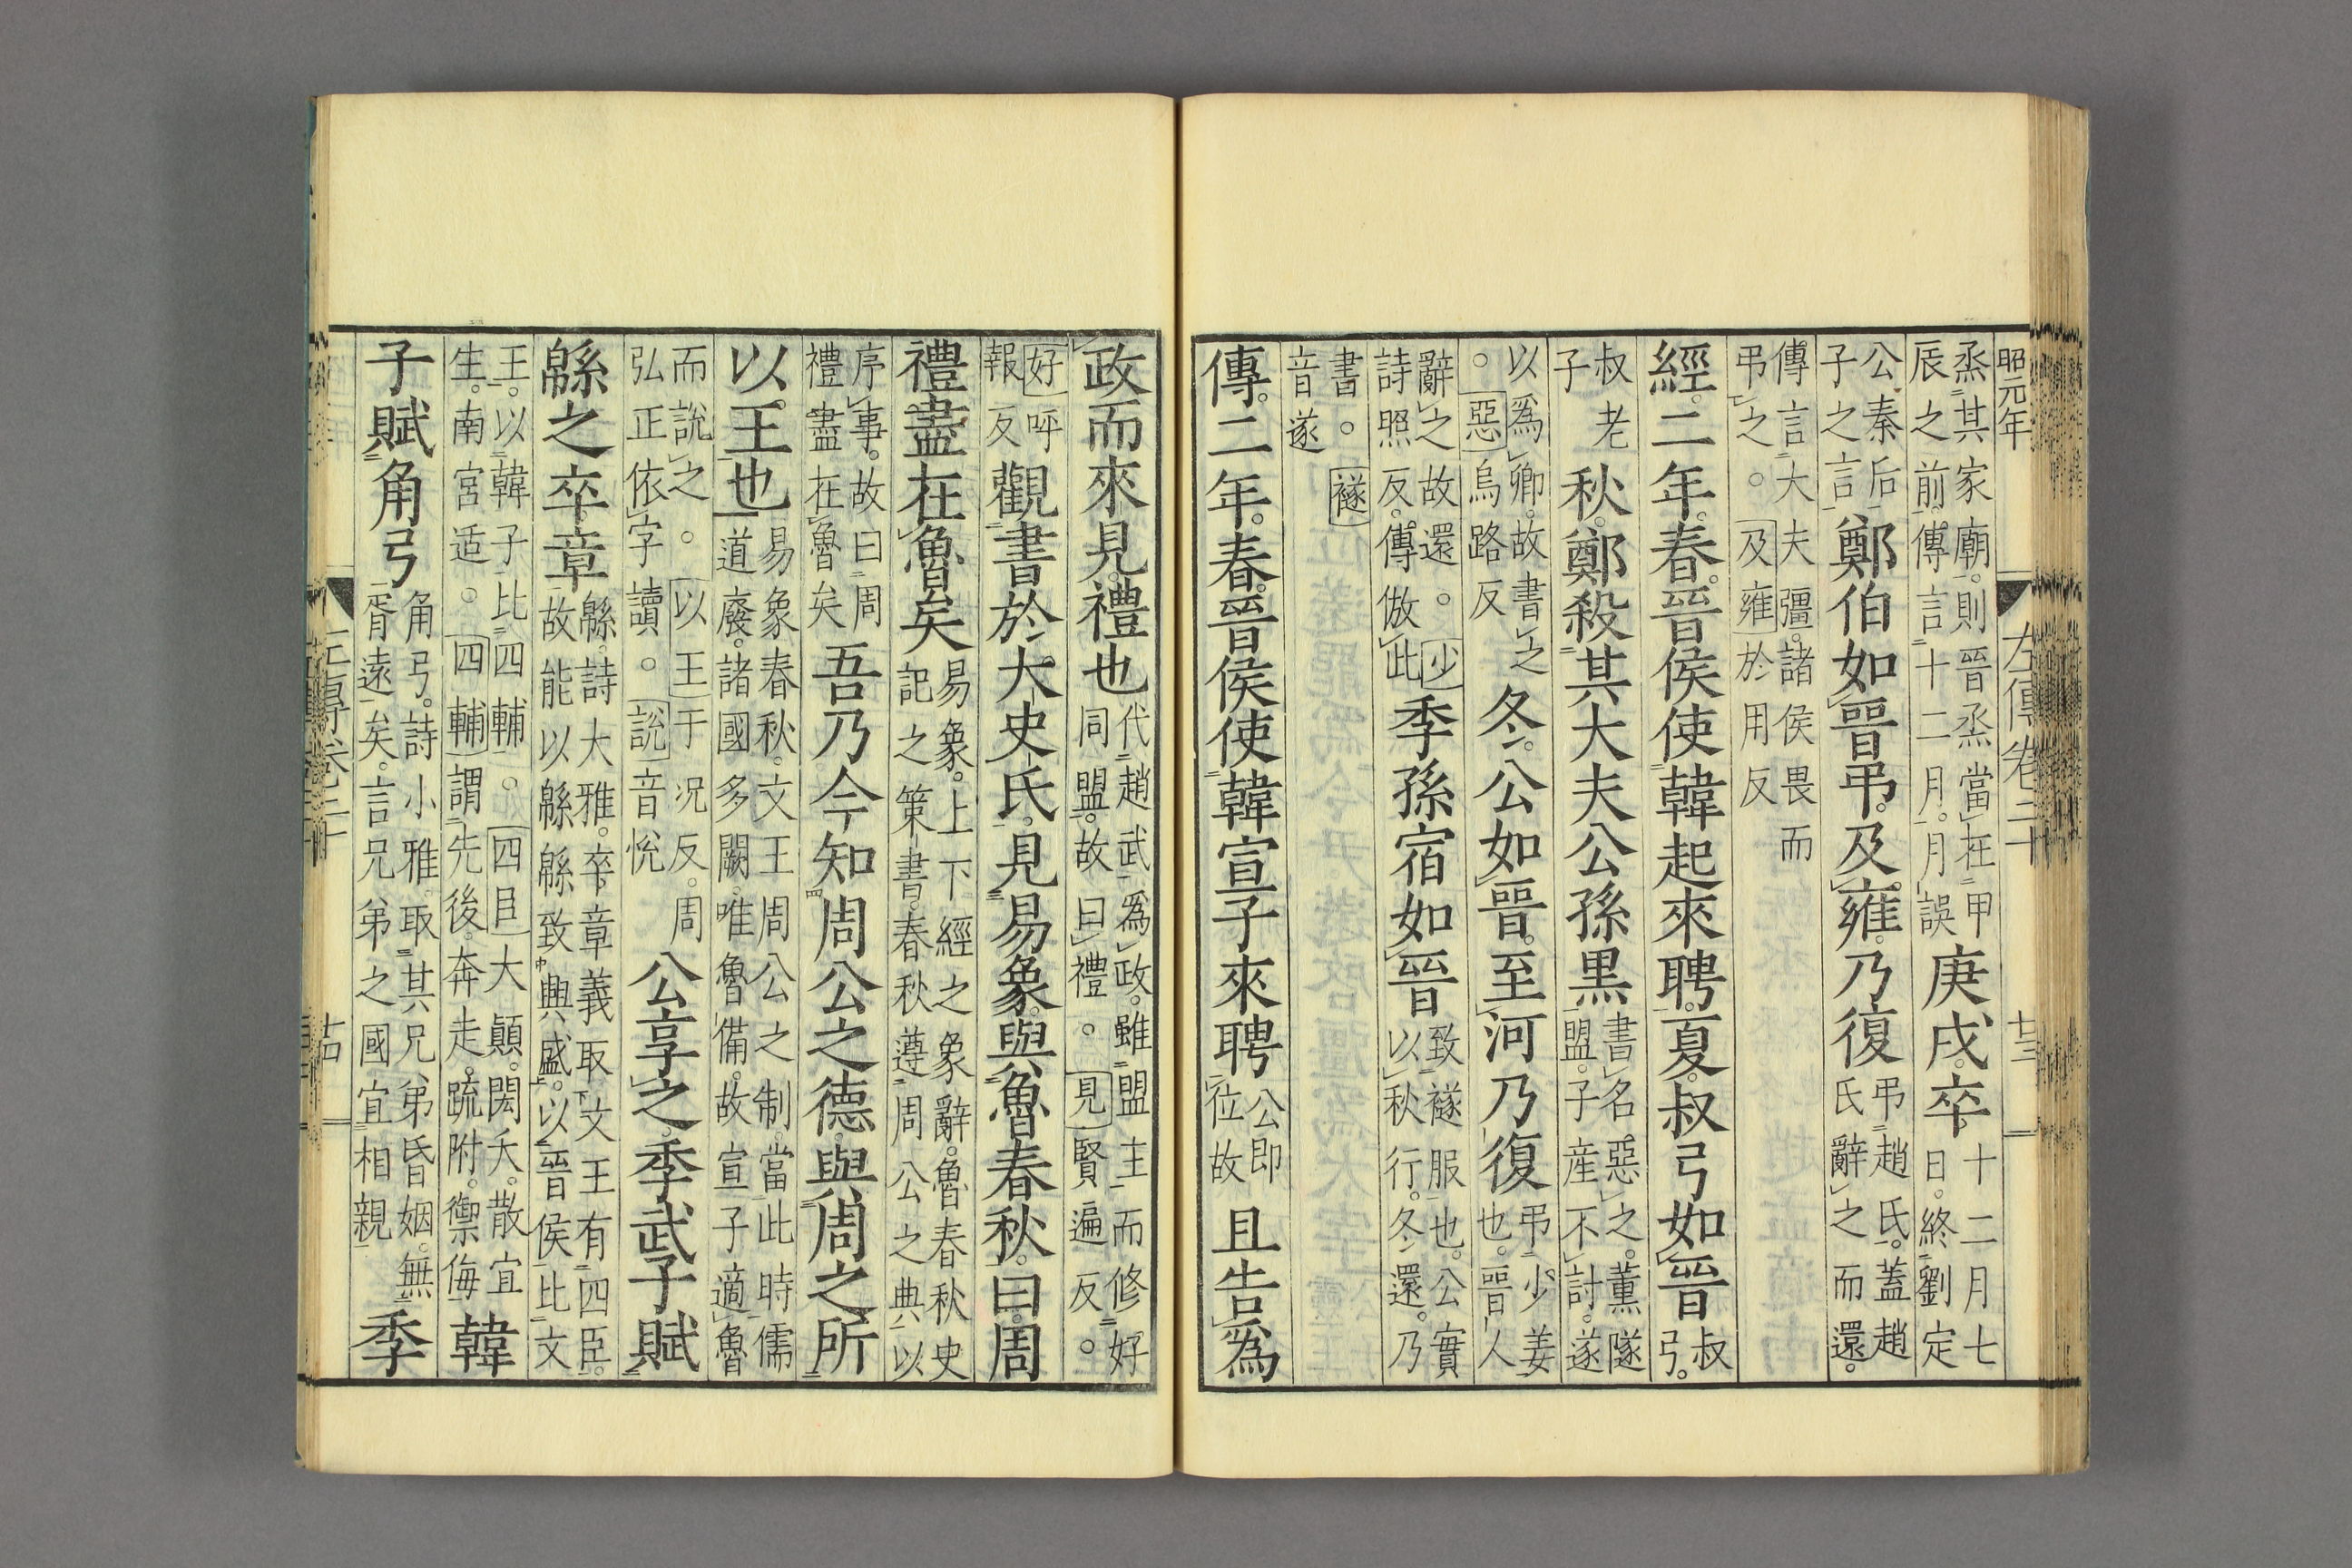 昭元年
左傳卷二十
烝其家廟則晉烝當在甲
辰之前傳言十二月月誤
庚戌卒
十二月七
日終劉定
公秦后
子之言
鄭伯如晉弔及雍乃復
弔趙氏蓋趙
氏辭之而還
傳言大夫彊諸侯畏而
弔之。及雍於用反
經二年春晉侯使韓起來聘夏叔弓如晉
叔
弓
叔老
子
秋鄭殺其大夫公孫黑
書名惡之薰隧
盟子産不討遂
以爲卿故書之
。惡烏路反
冬公如晉至河乃復
弔少姜
也晉人
辭之故還。少
詩照反傳倣此
季孫宿如晉
致襚服也公實
以秋行冬還乃
書。襚
音遂
傳二年春晉侯使韓宣子來聘
公即
位故
且告爲
政而來見禮也
代趙武爲政雖盟主而修好
同盟故曰禮。見賢遍反。
好呼
報反
觀書於大史氏見易象與魯春秋曰周
禮盡在魯矣
易象上下經之象辭魯春秋史
記之策書春秋遵周公之典以
序事故曰周
禮盡在魯矣
吾乃今知周公之德與周之所
以王也
易象春秋文王周公之制當此時儒
道廢諸國多闕唯魯備故宣子適魯
而說之。以王于況反周
弘正依字讀。說音悅
公享之季武子賦
緜之卒章
緜詩大雅卒章義取文王有四臣
故能以緜緜致興盛以晉侯比文
王以韓子比四輔。四臣大顛閎夭散宜
生南宮适。四輔謂先後奔走疏附禦侮
韓
子賦角弓
角弓詩小雅取其兄弟昏姻無
胥遠矣言兄弟之國宜相親
季